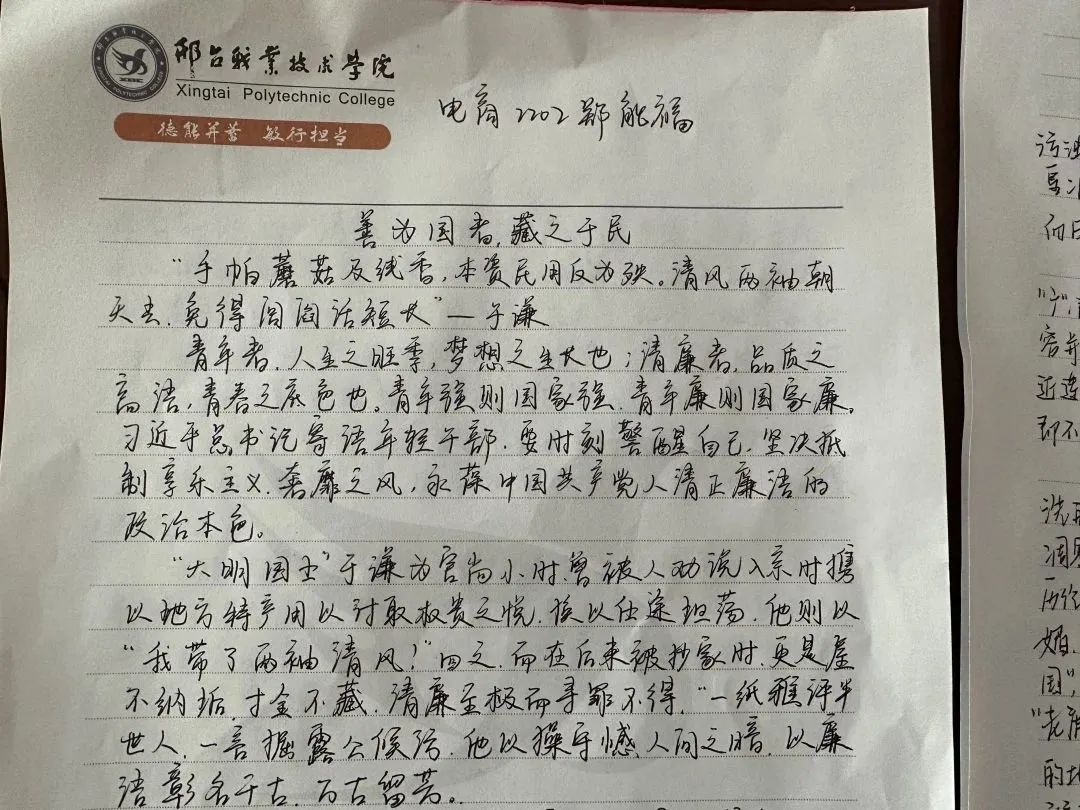 邢台职业技术学院
Xingtai Polytechnic College
德能并蓄 敏行担当
电商2202郑能福
善为国者，藏之于民
"手帕蘑菇及线香，本资民用反为殃。清风两袖朝
天去，免得闾阎话短长"—于谦
青年者，人生之旺季，梦想之生长也；清廉者，品质之
高洁，青春之底色也。青年强则国家强，青年廉则国家廉。
习近平总书记寄语年轻干部，要时刻警醒自己，坚决抵
制享乐主义、奢靡之风，永葆中国共产党人清正廉洁的
政治本色。
"大明国士"于谦为官尚小时，曾被人劝说入京时携
以地方特产用以讨取权贵之悦，换以仕途坦荡，他则以
"我带了两袖清风！"回之，而在后来被抄家时，更是屋
不纳垢，寸金不藏，清廉至极而寻罪不得，"一纸雅评半
世人，一言掘露公侯冢，他以操守撼人间之暗，以廉
洁彰名千古，万古留芳。
污浊
"宁
容并
近连
即不
洗
凋
历
婚
国"，
"老
的地